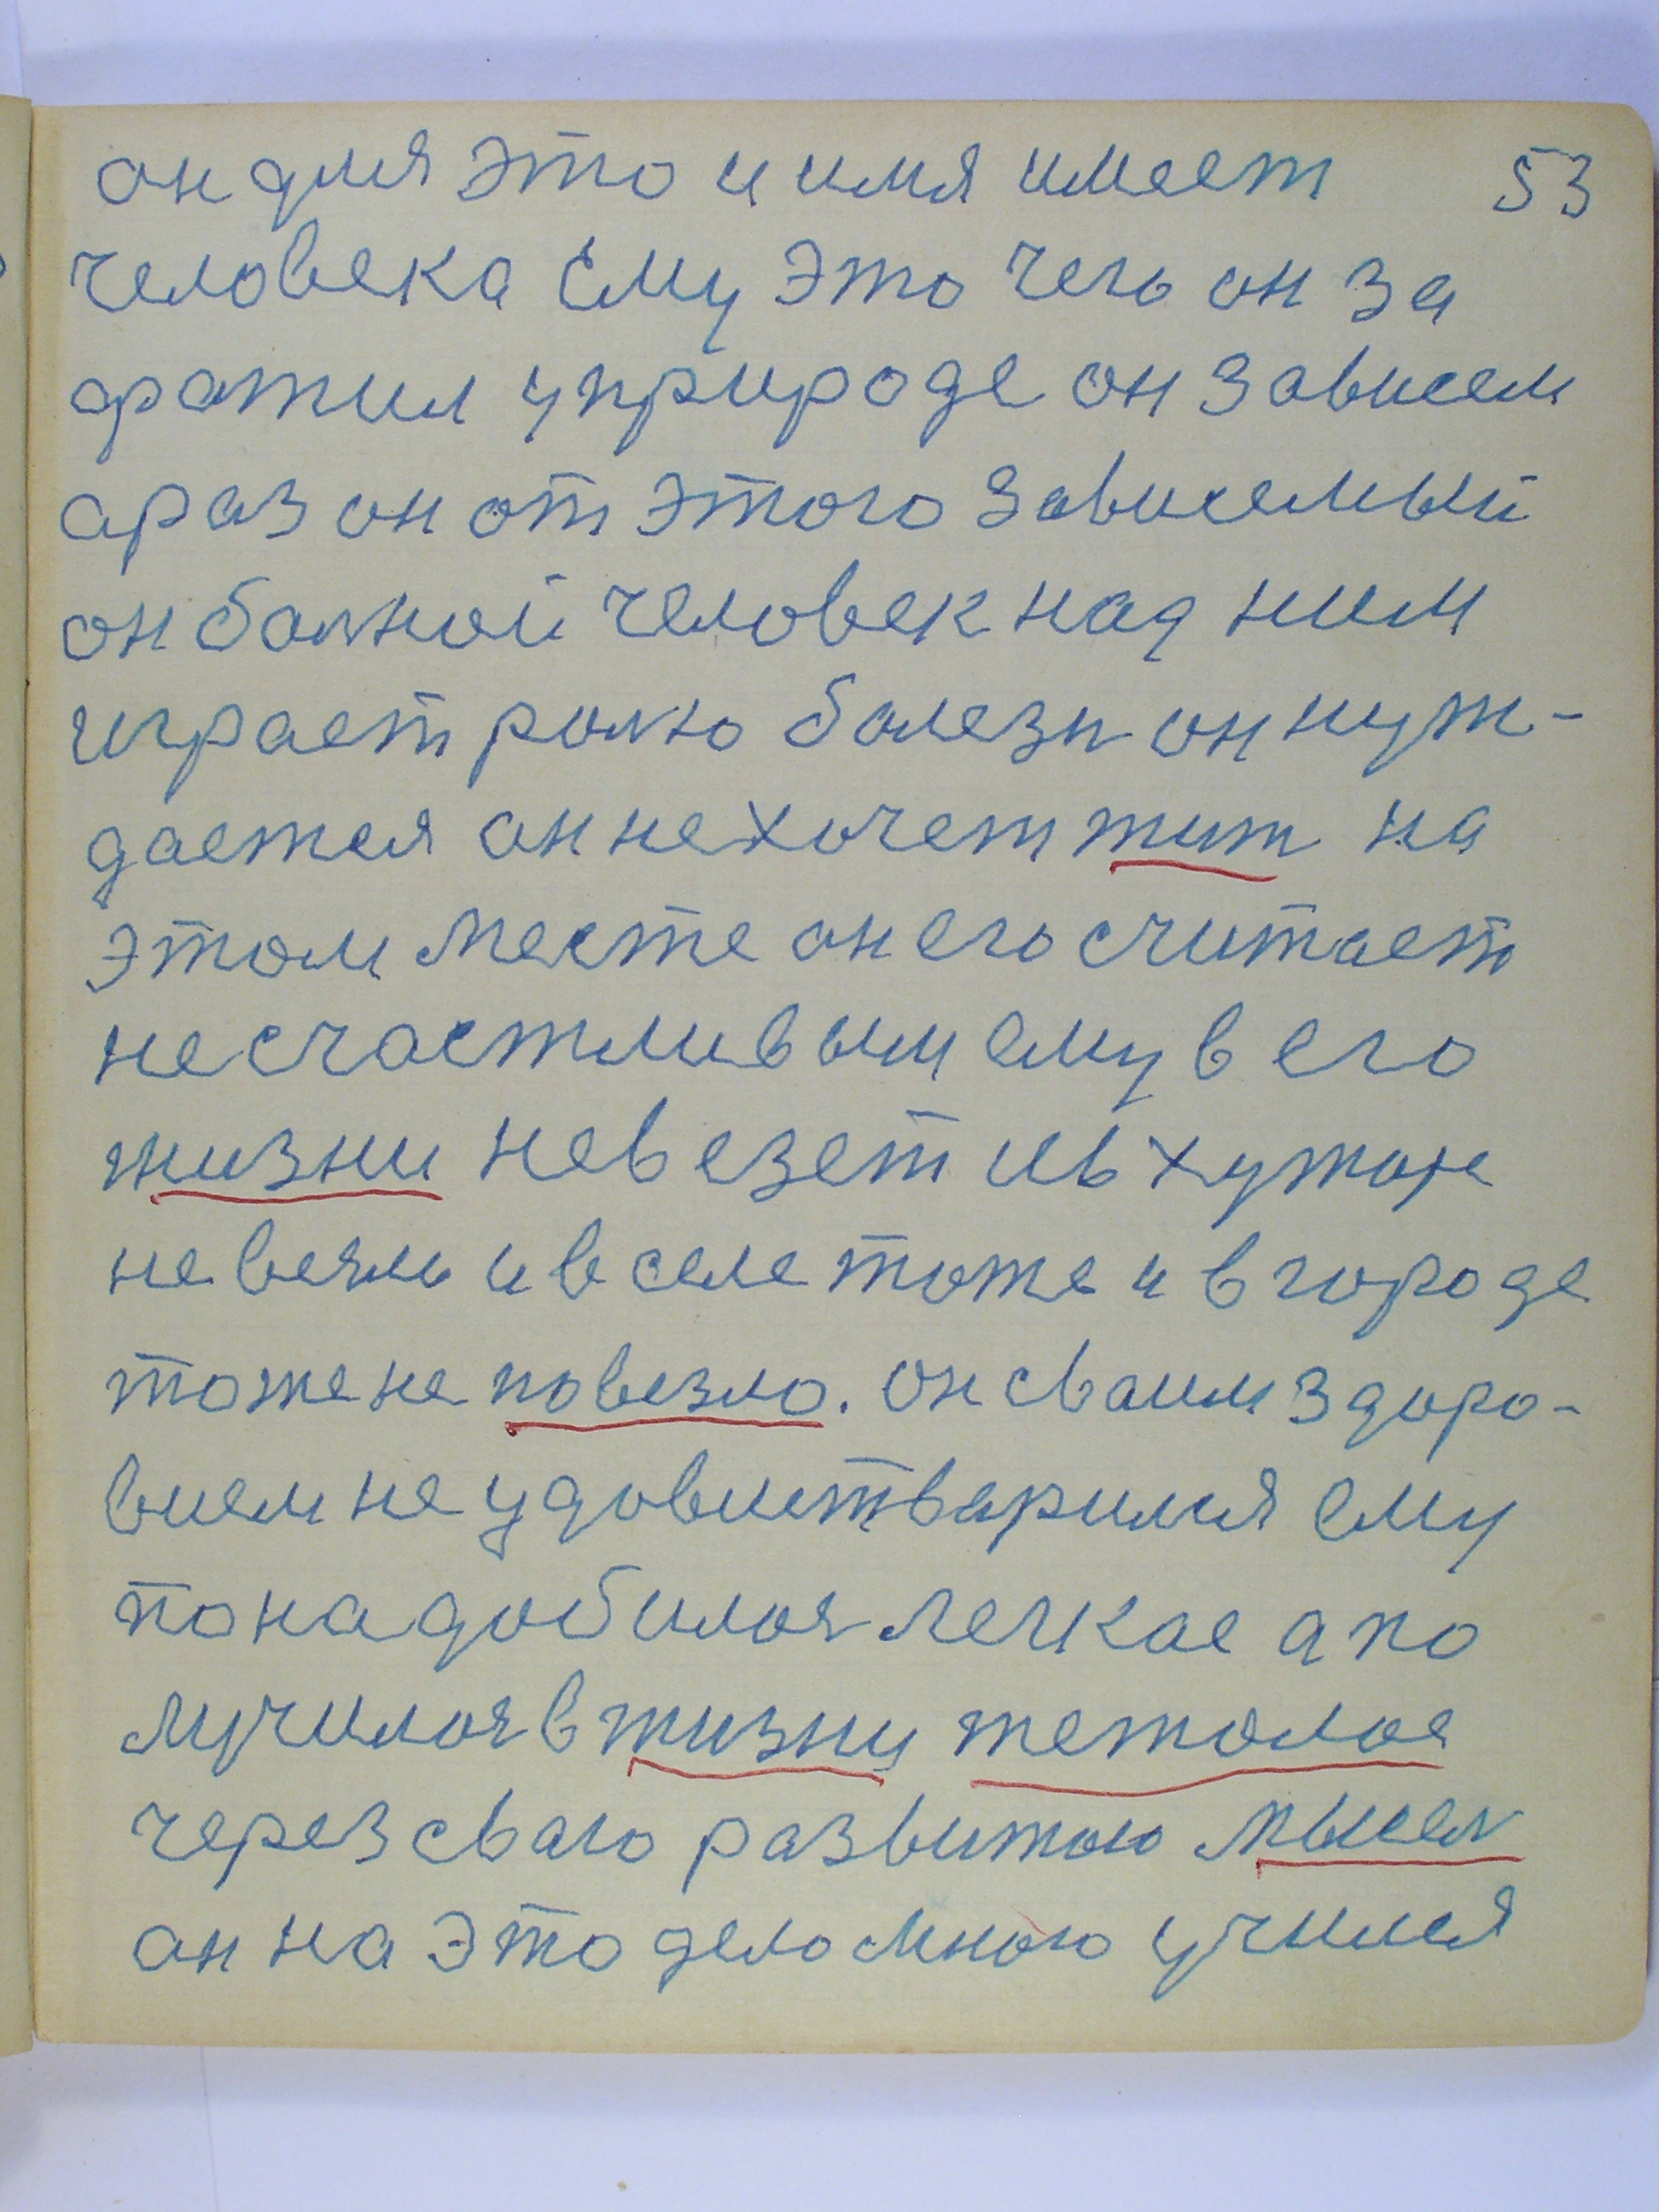 он для это и имя имеет 53
человека ему это чего он за
фатил у природе он зависем
араз он от этого зависемый
он балной человек над ним
играет ролю болезн он нуж-
дается он не хочет жит на
этом месте он его считает
несчастливым ему в его
жизни не везет и в хуторе
не везло и в селе тоже и в городе
тоже не повезло. он сваим здоро-
вием не удовлетварился ему
понадобилоя легкае а по
лучилоя в жизни тежолое
через сваю развитою мысел
он на это дело много учился